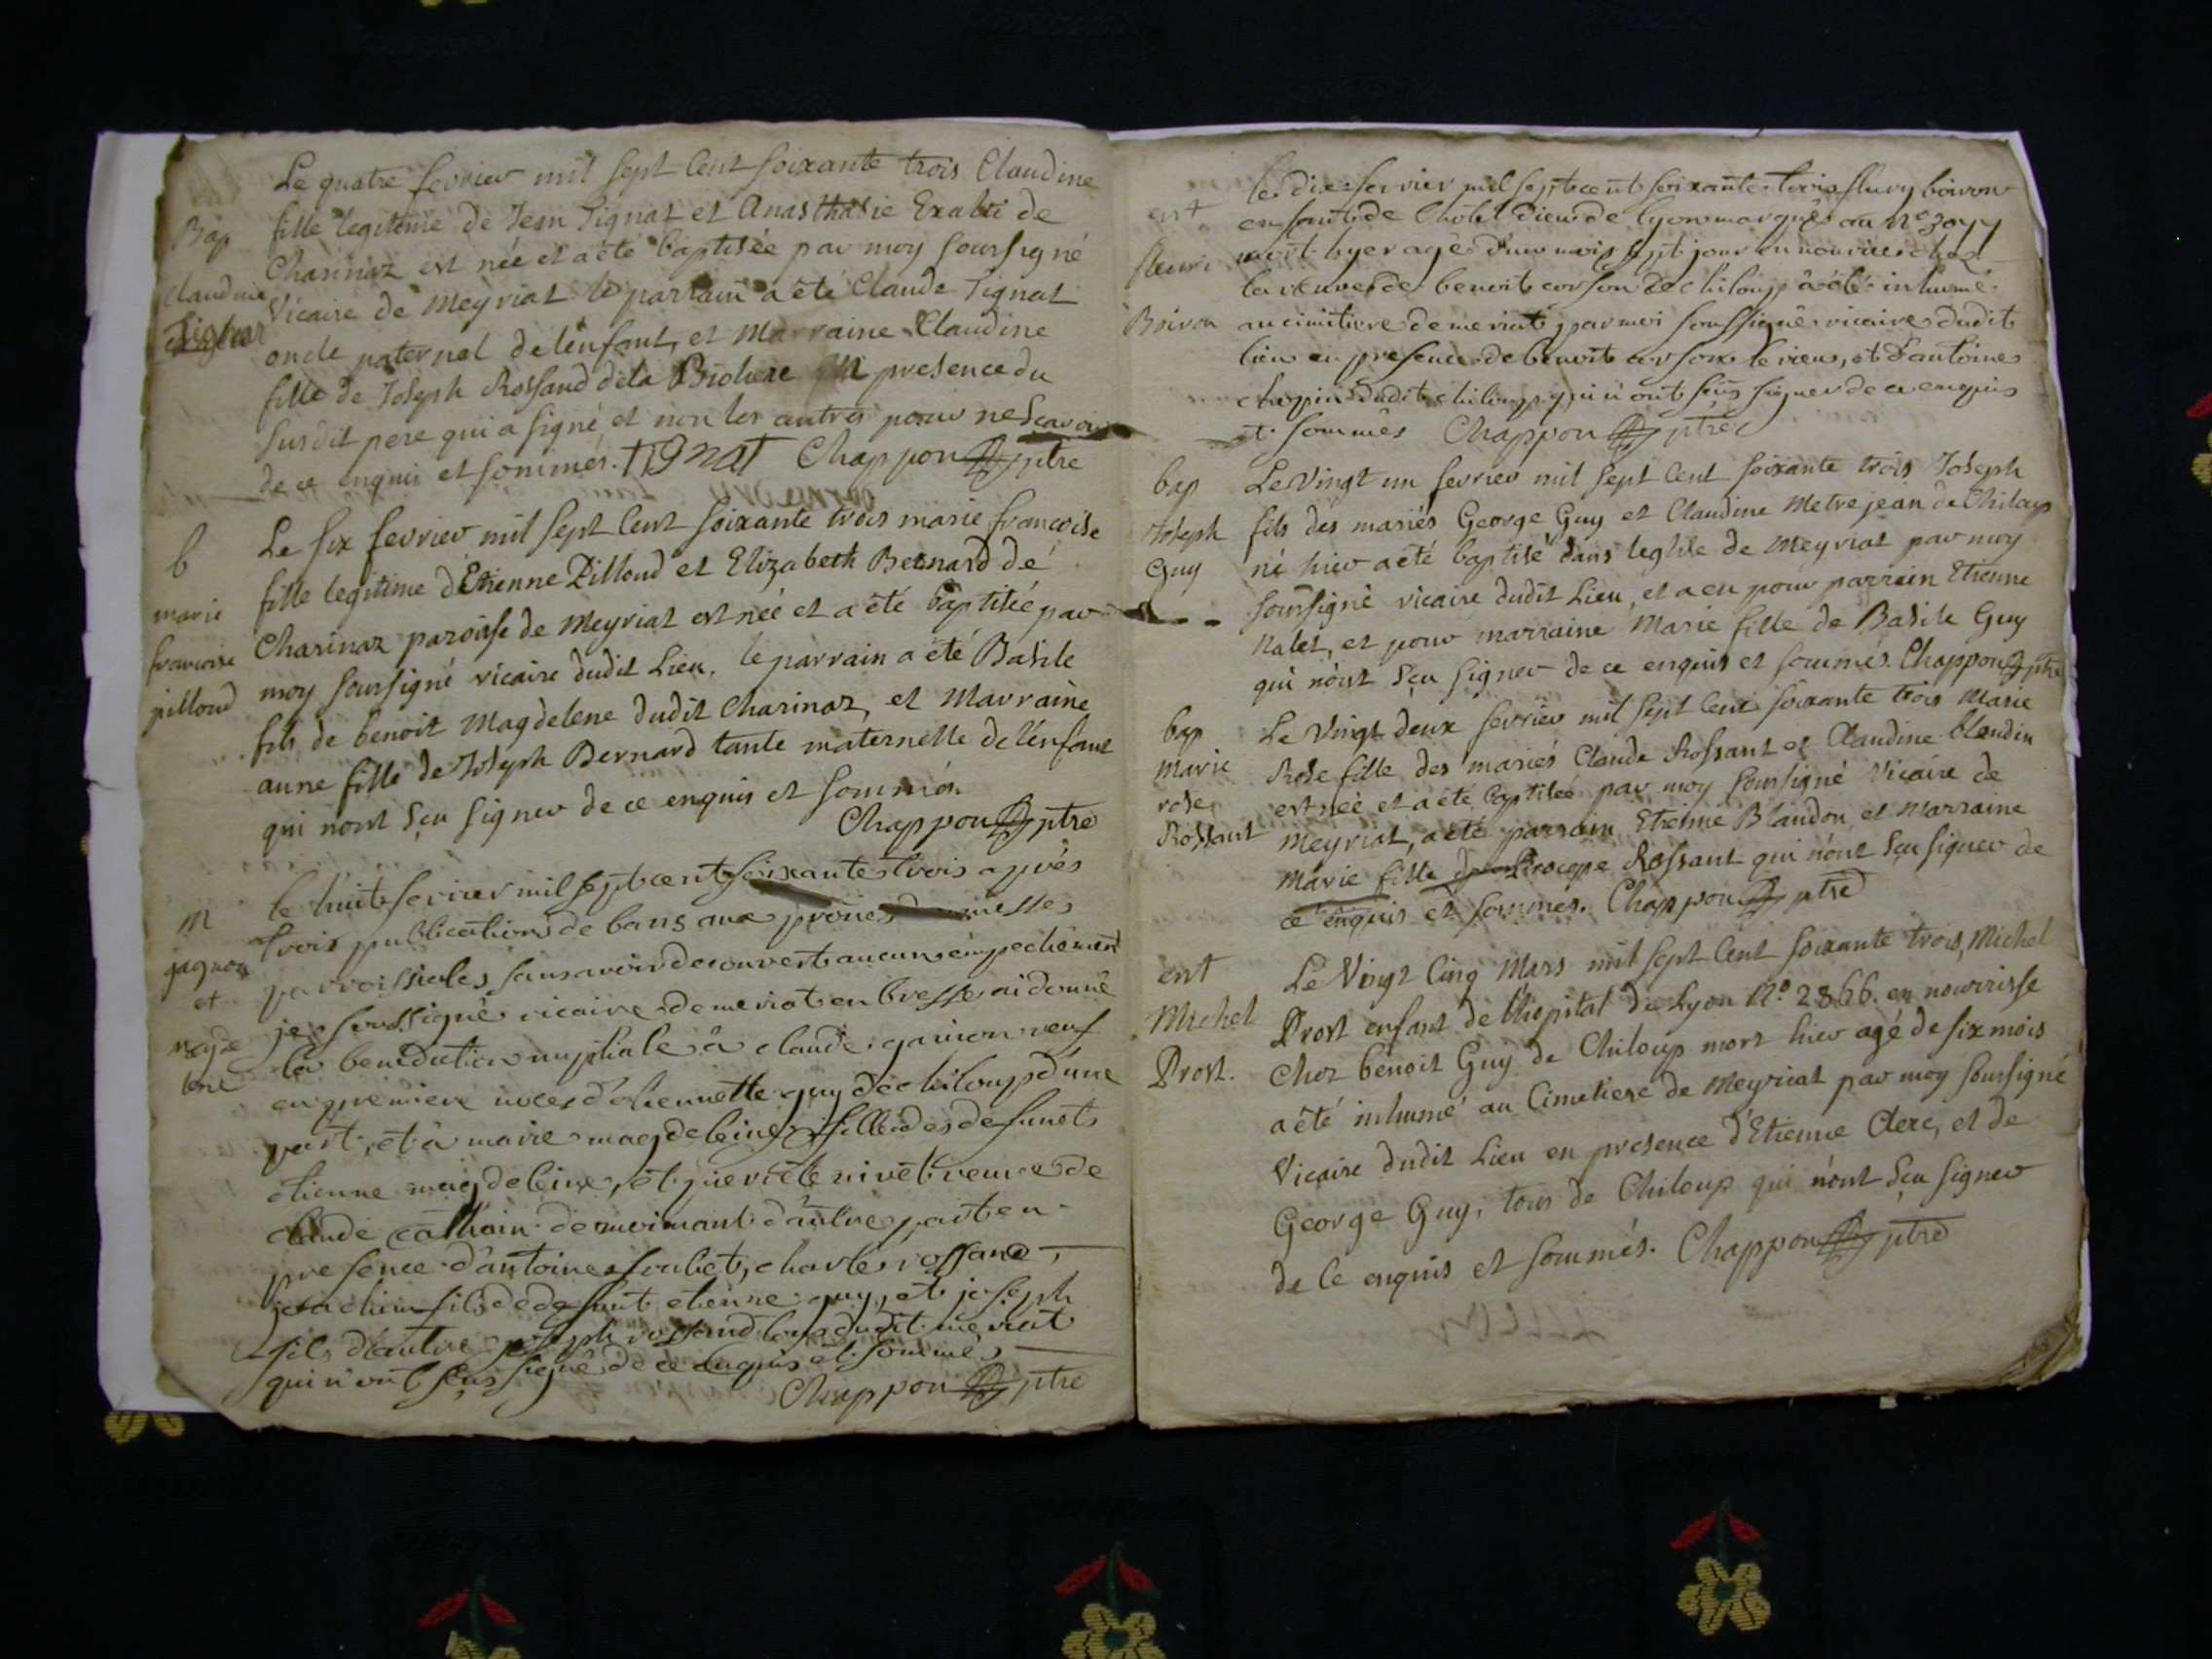 Le quatre fevrier mil sept cent soixante trois Claudine
Bap
fille legitime de Jean Tignat et Anasthasie Exalti de
Charinaz est née et a été baptisée par moy soussigné
claudine
Vicaire de Meyriat le parrain a été Claude Tignat
Tignat
oncle paternel de lenfant, et Marraine Claudine
fille de Joseph Rossand dela Bioliere en presence du
susdit pere qui a signé et non les autres pour ne scavoir
de ce enquis et sommés. tignat Chappon ptre
b
Le six fevrier mil sept cent soixante trois marie francoise
fille legitime d'Etienne Pilloud et Elizabeth Bernard de
marie
Charinaz paroisse de Meyriat est née et a été baptisée par
francoise
moy soussigné vicaire dudit Lieu. le parrain a été Basile
pilloud
fils de benoit Magdelene dudit Charinaz, et Marraine
anne fille de Joseph Bernard tante maternelle de l'enfant
qui n'ont sçu signer de ce enquis et sommés.
Chappon ptre
m
le huit fevrier mil sept cent soixante trois apres
trois publications de bans aux prones de messes
gagnon
parroissiales sans avoir decouvert aucun empechement
et
je soussigné vicaire de meriat en bresse ai donné
magde
la benediction nuptiale à claude ganion veuf
lene
en premiere noces d'etiennette guy de chiloup d'une
part, et à marie magdeleine fille des defunts
etienne magdeleine, et pierrete nivet veuve de
claude cathain de d'autre part en
presence d'antoine, charles rossand,
fils de defunt etienne guy, et joseph
fils d'autre joseph rossand tous dudit meriat
qui n'ont sçus signé de ce enquis et sommés
Chappon ptre
le dix fevrier mil sept cent soixante trois fleury boiron
ent
enfant de l'hôtel dieu de lyon marqué au n°
fleuri
mort hyer agé d'un mois sept jour en nourrice chez
la veuve de benoit corson de chiloup a été inhumé
Boiron
au cimitiere de meriat par moi soussigné vicaire dudit
lieu en presence de benoit corson le vieux, et d'antoine
chapin dudit chiloup qui n'ont sçus signer de ce enquis
et sommés Chappon ptre
bap
Le Vingt un fevrier mil sept cent soixante trois Joseph
Joseph
fils des mariés George Guy et Claudine Metrejean de Chiloup
Guy
né hier a été baptisé dans leglise de Meyriat par moy
soussigné vicaire dudit Lieu, et a eu pour parrain Etienne
Nalet, et pour marraine Marie fille de Basile Guy
qui n'ont sçu signer de ce enquis et sommés. Chappon ptre
bap
Le Vingt deux fevrier mil sept cent soixante trois Marie
marie
Rose fille des mariés Claude Rossant et Claudine blandin
rose
est née et a été baptisée par moy soussigné Vicaire de
Rossant
Meyriat, a été parrain Etienne Blandon et Marraine
Marie fille de Procope Rossant qui n'ont sçu signer de
ce enquis et sommés. Chappon ptre
ent
Le Vingt Cinq Mars mil sept cent soixante trois, Michel
Michel
Prost enfant de l'hopital de Lyon N° 2866. en nourrisse
Prost.
chez benoit Guy de Chiloup mort hier agé de six mois
a été inhumé au Cimetiere de Meyriat par moy soussigné
Vicaire dudit Lieu en presence d'Etienne Clerc, et de
George Guy, tous de Chiloup qui n'ont sçu signer
de ce enquis et sommés. Chappon ptre